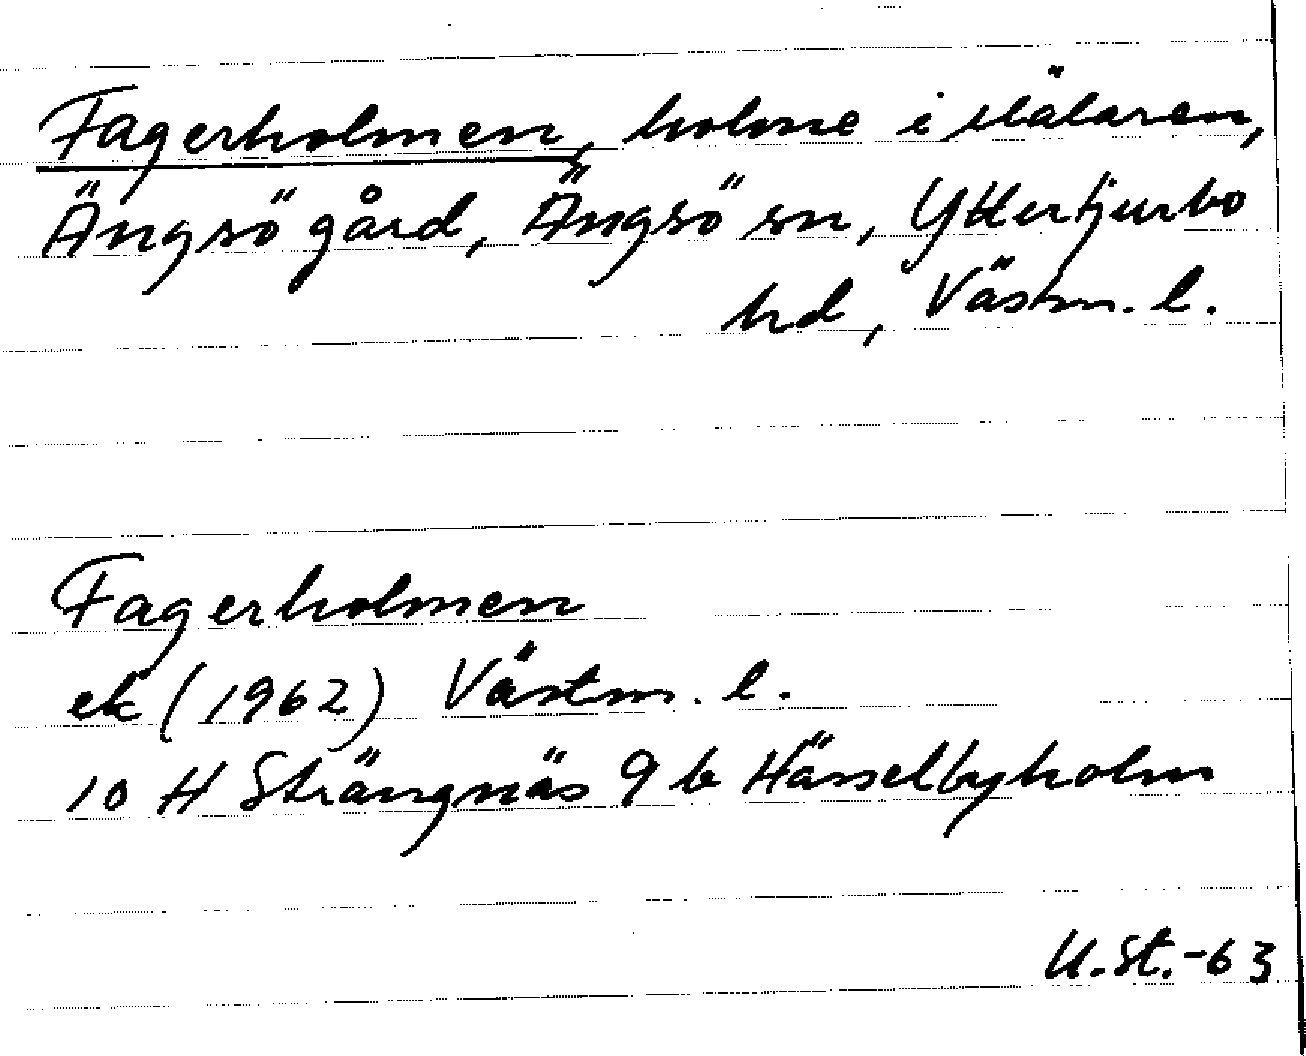 Fagerholmen, holme i Mälaren,
Ängsö gård, Ängsö sn, Yttertjurbo
hd, Västm. l.
Fagerholmen
ek (1962) Västm. l.
10 H Strängnäs 9 b Hässelbyholm
U. St. -63